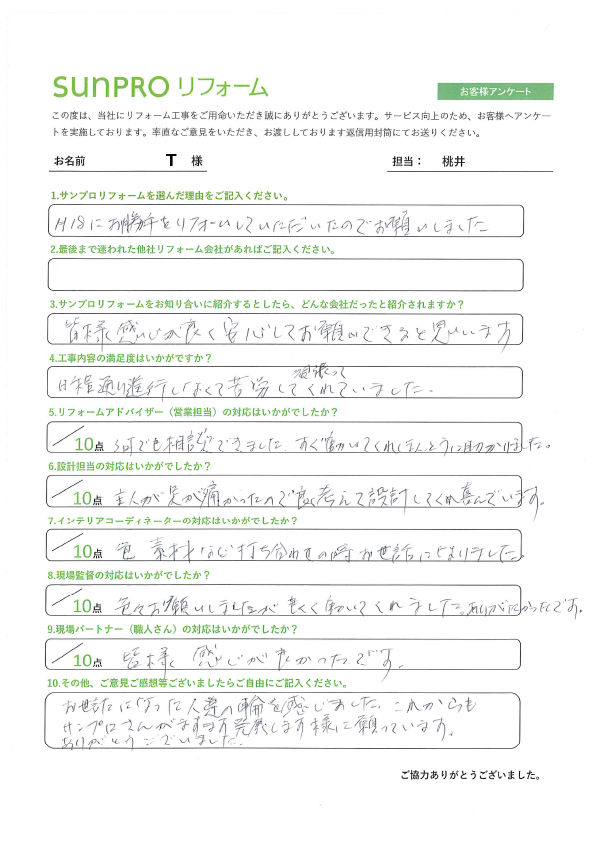 sunPRO リフォーム
お客様アンケート
この度は、当社にリフォーム工事をご用命いただき誠にありがとうございます。サービス向上のため、お客様へアンケー
トを実施しております。率直なご意見をいただき、お渡ししております返信用封筒にてお送りください。
お名前 T 様 担当： 桃井
1.サンプロリフォームを選んだ理由をご記入ください。
H18にお勝手をリフォームしていただいたのでお願いしました
2.最後まで迷われた他社リフォーム会社があればご記入ください。
3.サンプロリフォームをお知り合いに紹介するとしたら、どんな会社だったと紹介されますか？
皆様感じが良く安心してお願いできると思います
4.工事内容の満足度はいかがですか？
日程通り進行しなくて苦労して頑張ってくれていました.
5.リフォームアドバイザー（営業担当）の対応はいかがでしたか？
／10点 何でも相談できました.すぐ働いてくれほんとうに助かりました。
6.設計担当の対応はいかがでしたか？
／10点 主人が足が痛かったので良く考えて設計してくれ喜んでいます.
7.インテリアコーディネーターの対応はいかがでしたか？
／10点 色 素材など打ち合わせの時お世話になりました.
8.現場監督の対応はいかがでしたか？
／10点 色々お願いしましたが良く働いてくれました。ありがたかったです.
9.現場パートナー（職人さん）の対応はいかがでしたか？
／10点 皆様感じが良かったです.
10.その他、ご意見ご感想等ございましたらご自由にご記入ください。
お世話になった人達の輪を感じました.これからも
サンプロさんがますます発展します様に願っています.
ありがとうございました.
ご協力ありがとうございました。